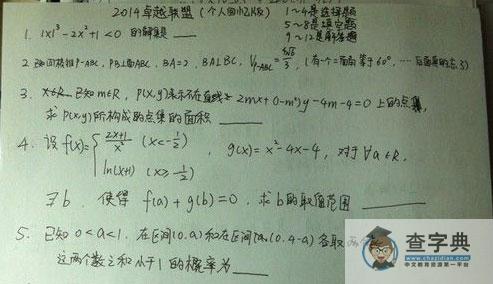 2014卓越联盟 (个人回忆版) 1~4是选择题
5~8是填空题
9~12是解答题
1. |x|³-2x²+1<0 的解集是 ____
2. 三棱锥P-ABC, PB⊥面ABC, BA=2, BA⊥BC, V_{P-ABC}=
3. 已知m∈R, P(x,y)表示不在直线 2mx+(1-m²)y-4m-4=0 上的点集,
求P(x,y)所构成的点集的面积 ____
4. 设 f(x)={ (2x+1)/x² (x<-1/2)
ln(x+1) (x≥-1/2)
, g(x)=x²-4x-4, 对于∀a∈R,
∃b, 使得 f(a)+g(b)=0, 求b的取值范围 ____
5. 已知0<a<1, 在区间(0,a)和在区间(0,4-a)各取
这两个数之和小于1的概率为 ____
查字典
www.chazidian.com